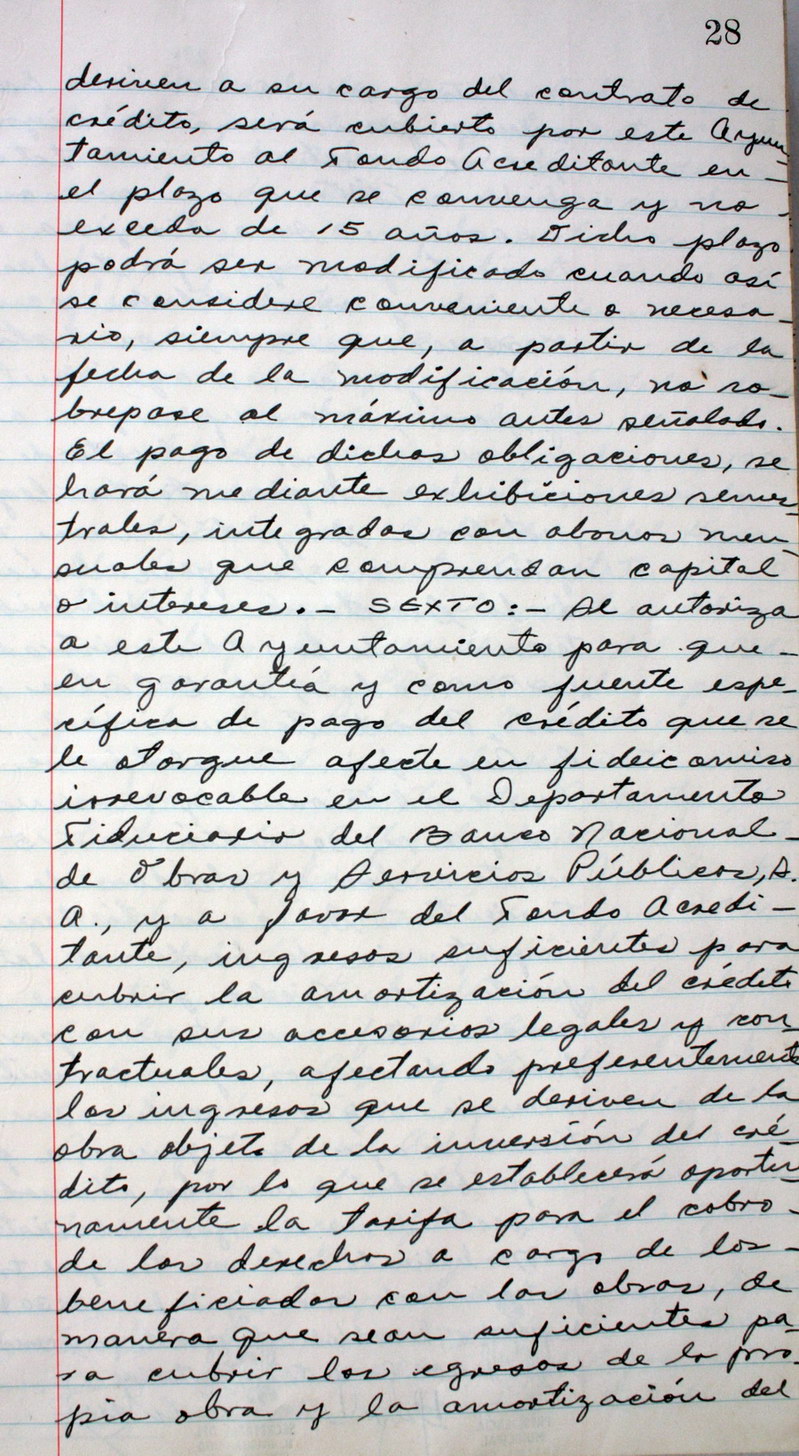 28
deriven a su cargo del contrato de
crédito, será cubierto por este Ayun-
tamiento al Fondo Acreditante en -
el plazo que se convenga y no -
exceda de 15 años. Dicho plazo
podrá ser modificado cuando así
se considere conveniente o necesa-
rio, siempre que, a partir de la
fecha de la modificación, no so-
brepase al máximo antes señalado.
El pago de dichas obligaciones, se
hará mediante exhibiciones semes-
trales, integradas con abonos men-
suales que comprendan capital
o intereses. - SEXTO: - Se autoriza
a este Ayuntamiento para que -
en garantía y como fuente espe-
cífica de pago del crédito que se
le otorgue afecte en fideicomiso
irrevocable en el Departamento
Fiduciario del Banco Nacional -
de Obras y Servicios Públicos, S.
A., y a favor del Fondo Acredi-
tante, ingresos suficientes para
cubrir la amortización del crédito
con sus accesorios legales y con
tractuales, afectando preferentemente
los ingresos que se deriven de la
obra objeto de la inversión del cré-
dito, por lo que se establecerá oportu-
namente la tarifa para el cobro -
de los derechos a cargo de los -
beneficiados con las obras, de
manera que sean suficientes pa-
ra cubrir los egresos de la pro-
pia obra y la amortización del